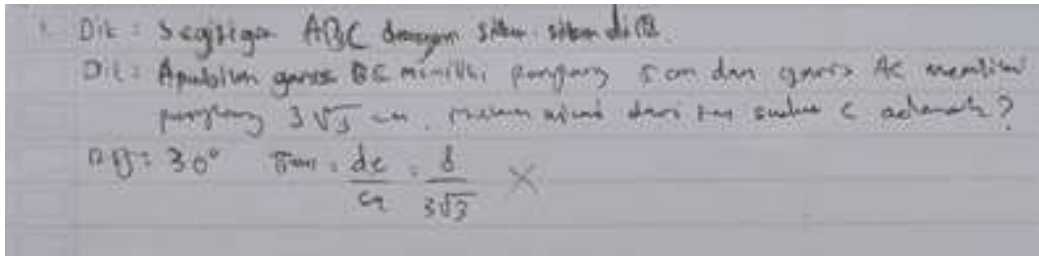 Dik : Segitiga ABC dengan siku-siku di B.
Dit : Apabila garis BC memiliki panjang 5 cm dan garis AC memiliki
panjang 3√3 cm, maka nilai dari tan sudut C adalah ?
: 30° Tan = de = 8
sa 3√3 ×